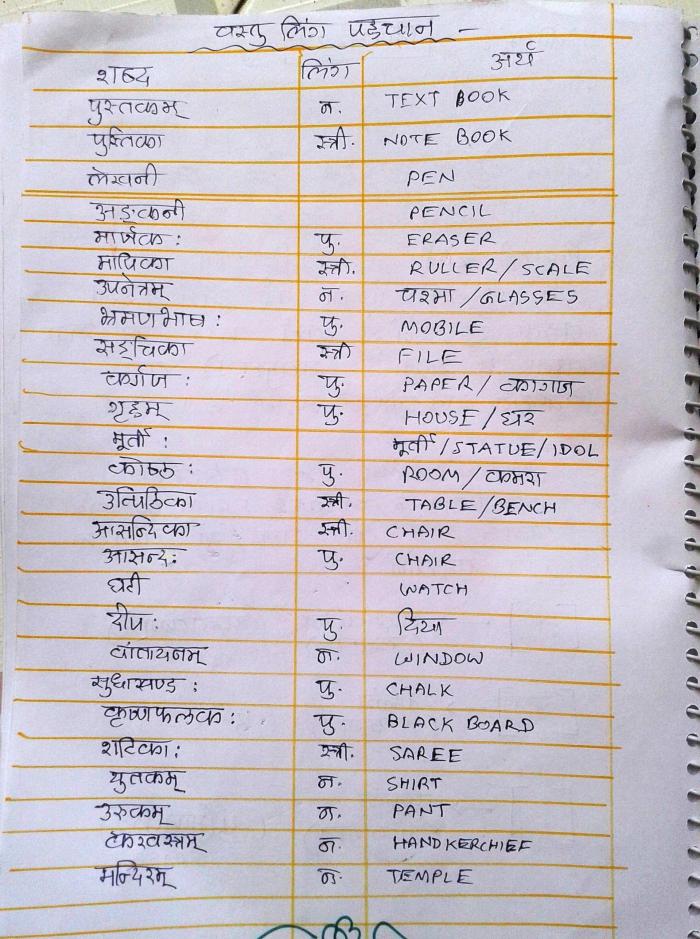 वस्तु लिंग पहचान -
शब्द लिंग अर्थ
पुस्तकम् न. TEXT BOOK
पुस्तिका स्त्री. NOTE BOOK
लेखनी PEN
अङ्कनी PENCIL
मार्जक: पु. ERASER
मापिका स्त्री. RULLER/SCALE
उपनेत्रम् न. चश्मा/GLASSES
भ्रमणभाष: पु. MOBILE
सञ्चिका स्त्री FILE
कर्गज: पु. PAPER/कागज
गृहम् पु. HOUSE/घर
मूर्ती: मूर्ती/STATUE/IDOL
कोष्ठ: पु. ROOM/कमरा
उत्पिठिका स्त्री. TABLE/BENCH
आसन्दिका स्त्री. CHAIR
आसन्द: पु. CHAIR
घटी WATCH
दीप: पु. दिया
वातायनम् न. WINDOW
सुधाखण्ड: पु. CHALK
कृष्णफलक: पु. BLACK BOARD
शटिका: स्त्री. SAREE
युतकम् न. SHIRT
उरुकम् न. PANT
करवस्त्रम् न. HANDKERCHIEF
मन्दिरम् न. TEMPLE